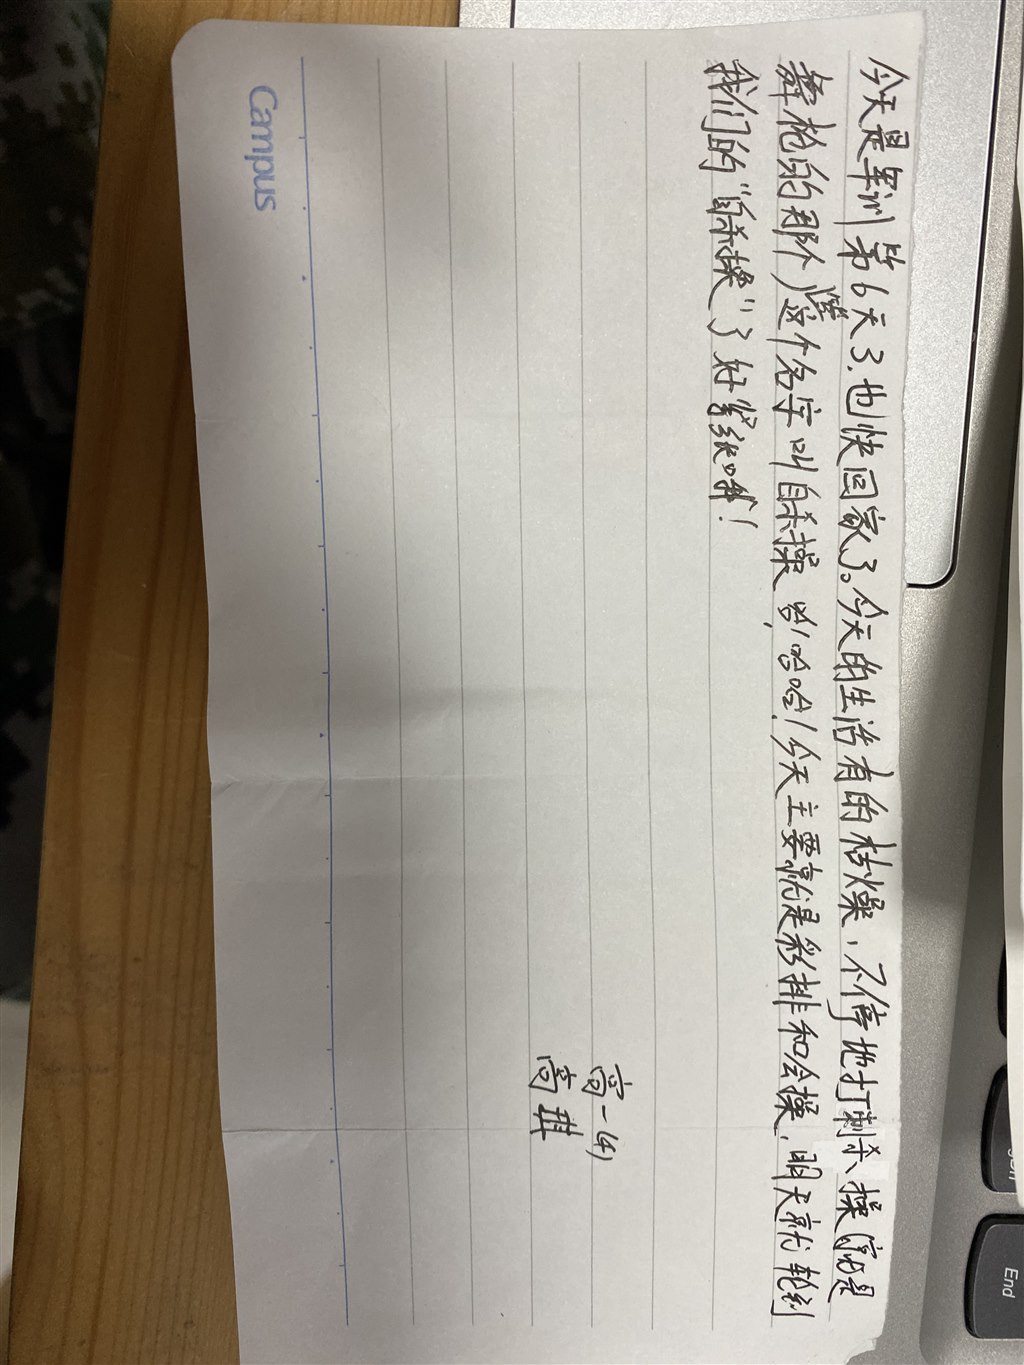 今天是军训第6天了,也快回家了。今天的生活有的枯燥,不停地打刺杀、操,就是
舞枪的那个,这个名字叫自杀操,哈哈哈!今天主要就是彩排和会操,明天就轮到
我们的“自杀操”了好紧张哦!
高一(4)
高琪
Campus
End